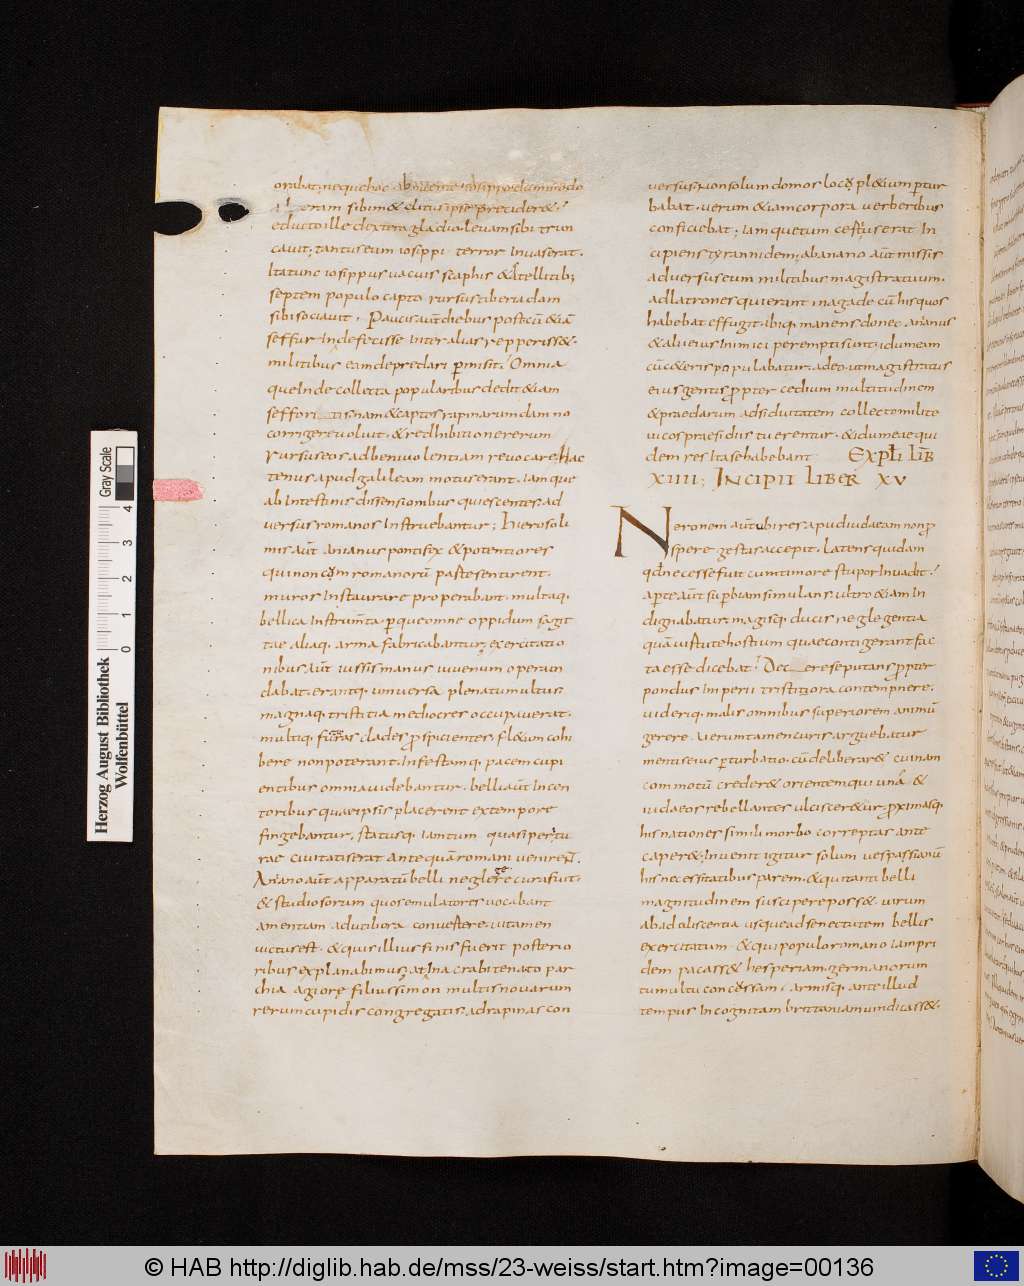 orabat; neq; hoc abnuente iosippo dummodo
alteram sibim& clitus ipse precider&.
educto ille dextera gladio. levam sibi trun
cavit; tantus eum iosippi terror invaserat.
Ita tunc iosippus vacuis scaphis & satellitib;
septem populo capto rursus tiberiadam
sibi sociavit. Paucis aūt diebus post cū &iā
seffur in defecisse inter alias repperiss&.
militibus eam depredari p̄misit. Omnia
que inde collecta popularibus dedit & iam
seffori tis nam & captos rapinarum dam no
corrigere voluit. & redhibitione rerum
rursus eos ad benivolentiam revocare. Hac
tenus apud galileam motus erant. Iamque
ab intestinis disensionibus quiescentes. ad
versus romanos instruebantur; Hierosoli
mis aūt ananus pontifix & potentiores
qui non cōm romanorū paste sentirent.
muros instaurare properabant. multaq.
bellica instrum̄ta. p̄ que omne oppidum sagit
tae aliaq. arma fabricabantur; exercitatio
nibus aūt iussis manus iuvenum operam
dabat. erantq. universa plena tumultus
magnaq. tristitia mediocres occupaverat.
multiq. futuras clades p̄spicientes. fl&um cohi
bere non poterant. Infestamq. pacem cupi
entibus omnia videbantur. belli aūt incen
toribus quae ipsis placerent extempore
fingebantur. statusq. iam tum quasi peritu
rae civitatis erat ante quā romani venirent.
Anano aūt apparatū belli neglegere cura fuit.
& studiosorum quos emulatores vocabant
amentiam ad utibora convertere. vitamen
victus est. & qui vis illius finis fuerit posterio
ribus explanabimus; at in acrabitena to par
chia agiore filius simon multis novarum
rerum cupidis congregatis. ad rapinas con
versus; non solum domos locopl&ium p̄tur
babat. verum &iam corpora verberibus
conficiebat; Iam quetum certus erat in
cipiens tyrannidem; ab anano aūt missis
adversus eum militibus magistratuum.
ad latrones qui erant in agade cū his quos
habebat effugit. ibiq. manens donec ananus
& alii eius inimici perempti sunt. idumeam
cū c&eris populabatur. adeo ut magistratus
eius gentis p̄pter cedium multitudinem
& praedarum adsiduitatem collecto milite
vicos praesidiis tuerentur. & idumeae qui
dem res ita se habebant ExpLi Lib
XIIII; INCIPIT LIBER XV
Neronem aūt ubi res apud iudaeam non p̄
spere gestis accepit. Latens quidam
qd necesse fuit cum timore stupor invadit.
aperte aūt sup̄biam simulans. ultro &iam in
dignabatur; magisq. ducis neglegentia
quā virtute hostium quae contigerant fac
ta esse dicebat. Dec ere se putans p̄pter
pondus imperii tristitiora contempnere.
viderīq. malis omnibus superiorem animū
gerere. verum tamen curis arguebatur
mentis eius p̄turbatio. cū deliberar& cui nam
commotū creder& orientem qui una &
iudaeos rebellantes ulcisceretur. p̄ximasq.
his nationes simili morbo correptas ante
caper&; Invenit igitur solum vespasianū
his necessitatibus parem. & qui tanti belli
magnitudinem suscipere poss&. virum
ab adoliscentia usque ad senectutem bellis
exercitatum. & qui populo romano iam pri
dem pacass& hesperiam. germanorum
tumultu concussam. armisq. ante illud
tempus incognitam brittaniam vindicass&.
Herzog August Bibliothek
Wolfenbüttel
Gray Scale
0 1 2 3 4
© HAB http://diglib.hab.de/mss/23-weiss/start.htm?image=00136